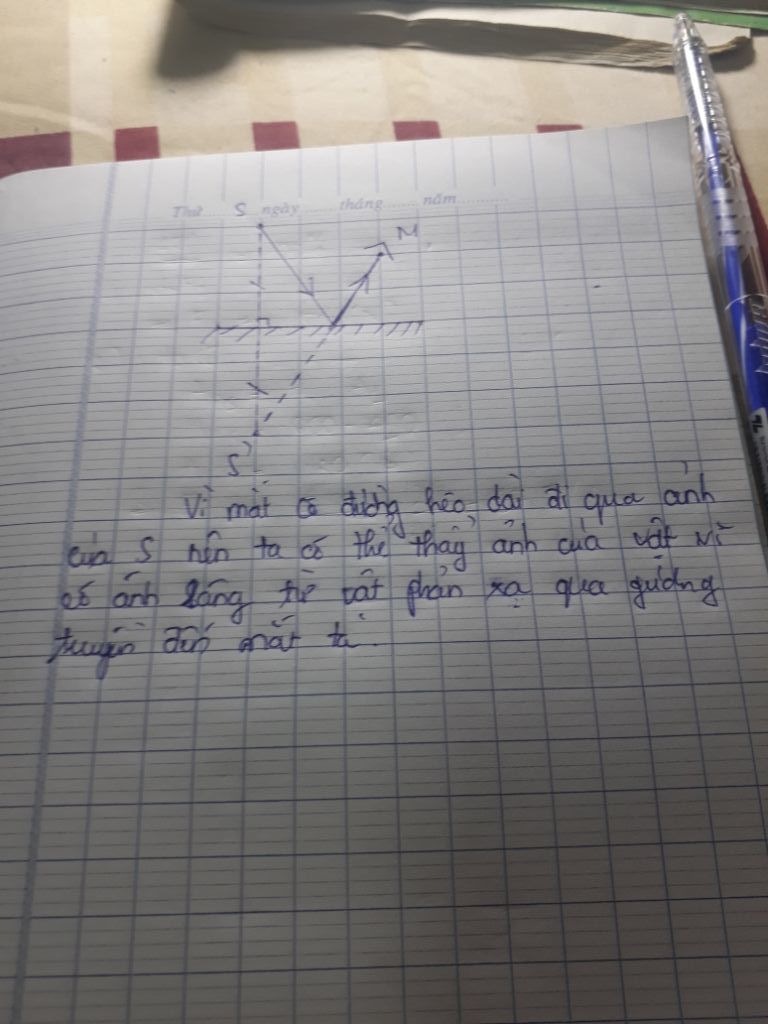 Thứ S ngày tháng năm
M
S'
Vì mắt có đường kéo dài đi qua ảnh
của S nên ta có thể thấy ảnh của vật vì
có ánh sáng từ vật phản xạ qua gương
truyền đến mắt ta.